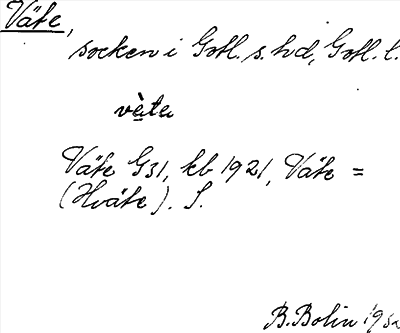 Väte,
socken i Gotl. s. hd, Gotl. l.
vὲta
Väte G31, kb 1921, Väte =
(Hväte). S.
B. Bolin 1932